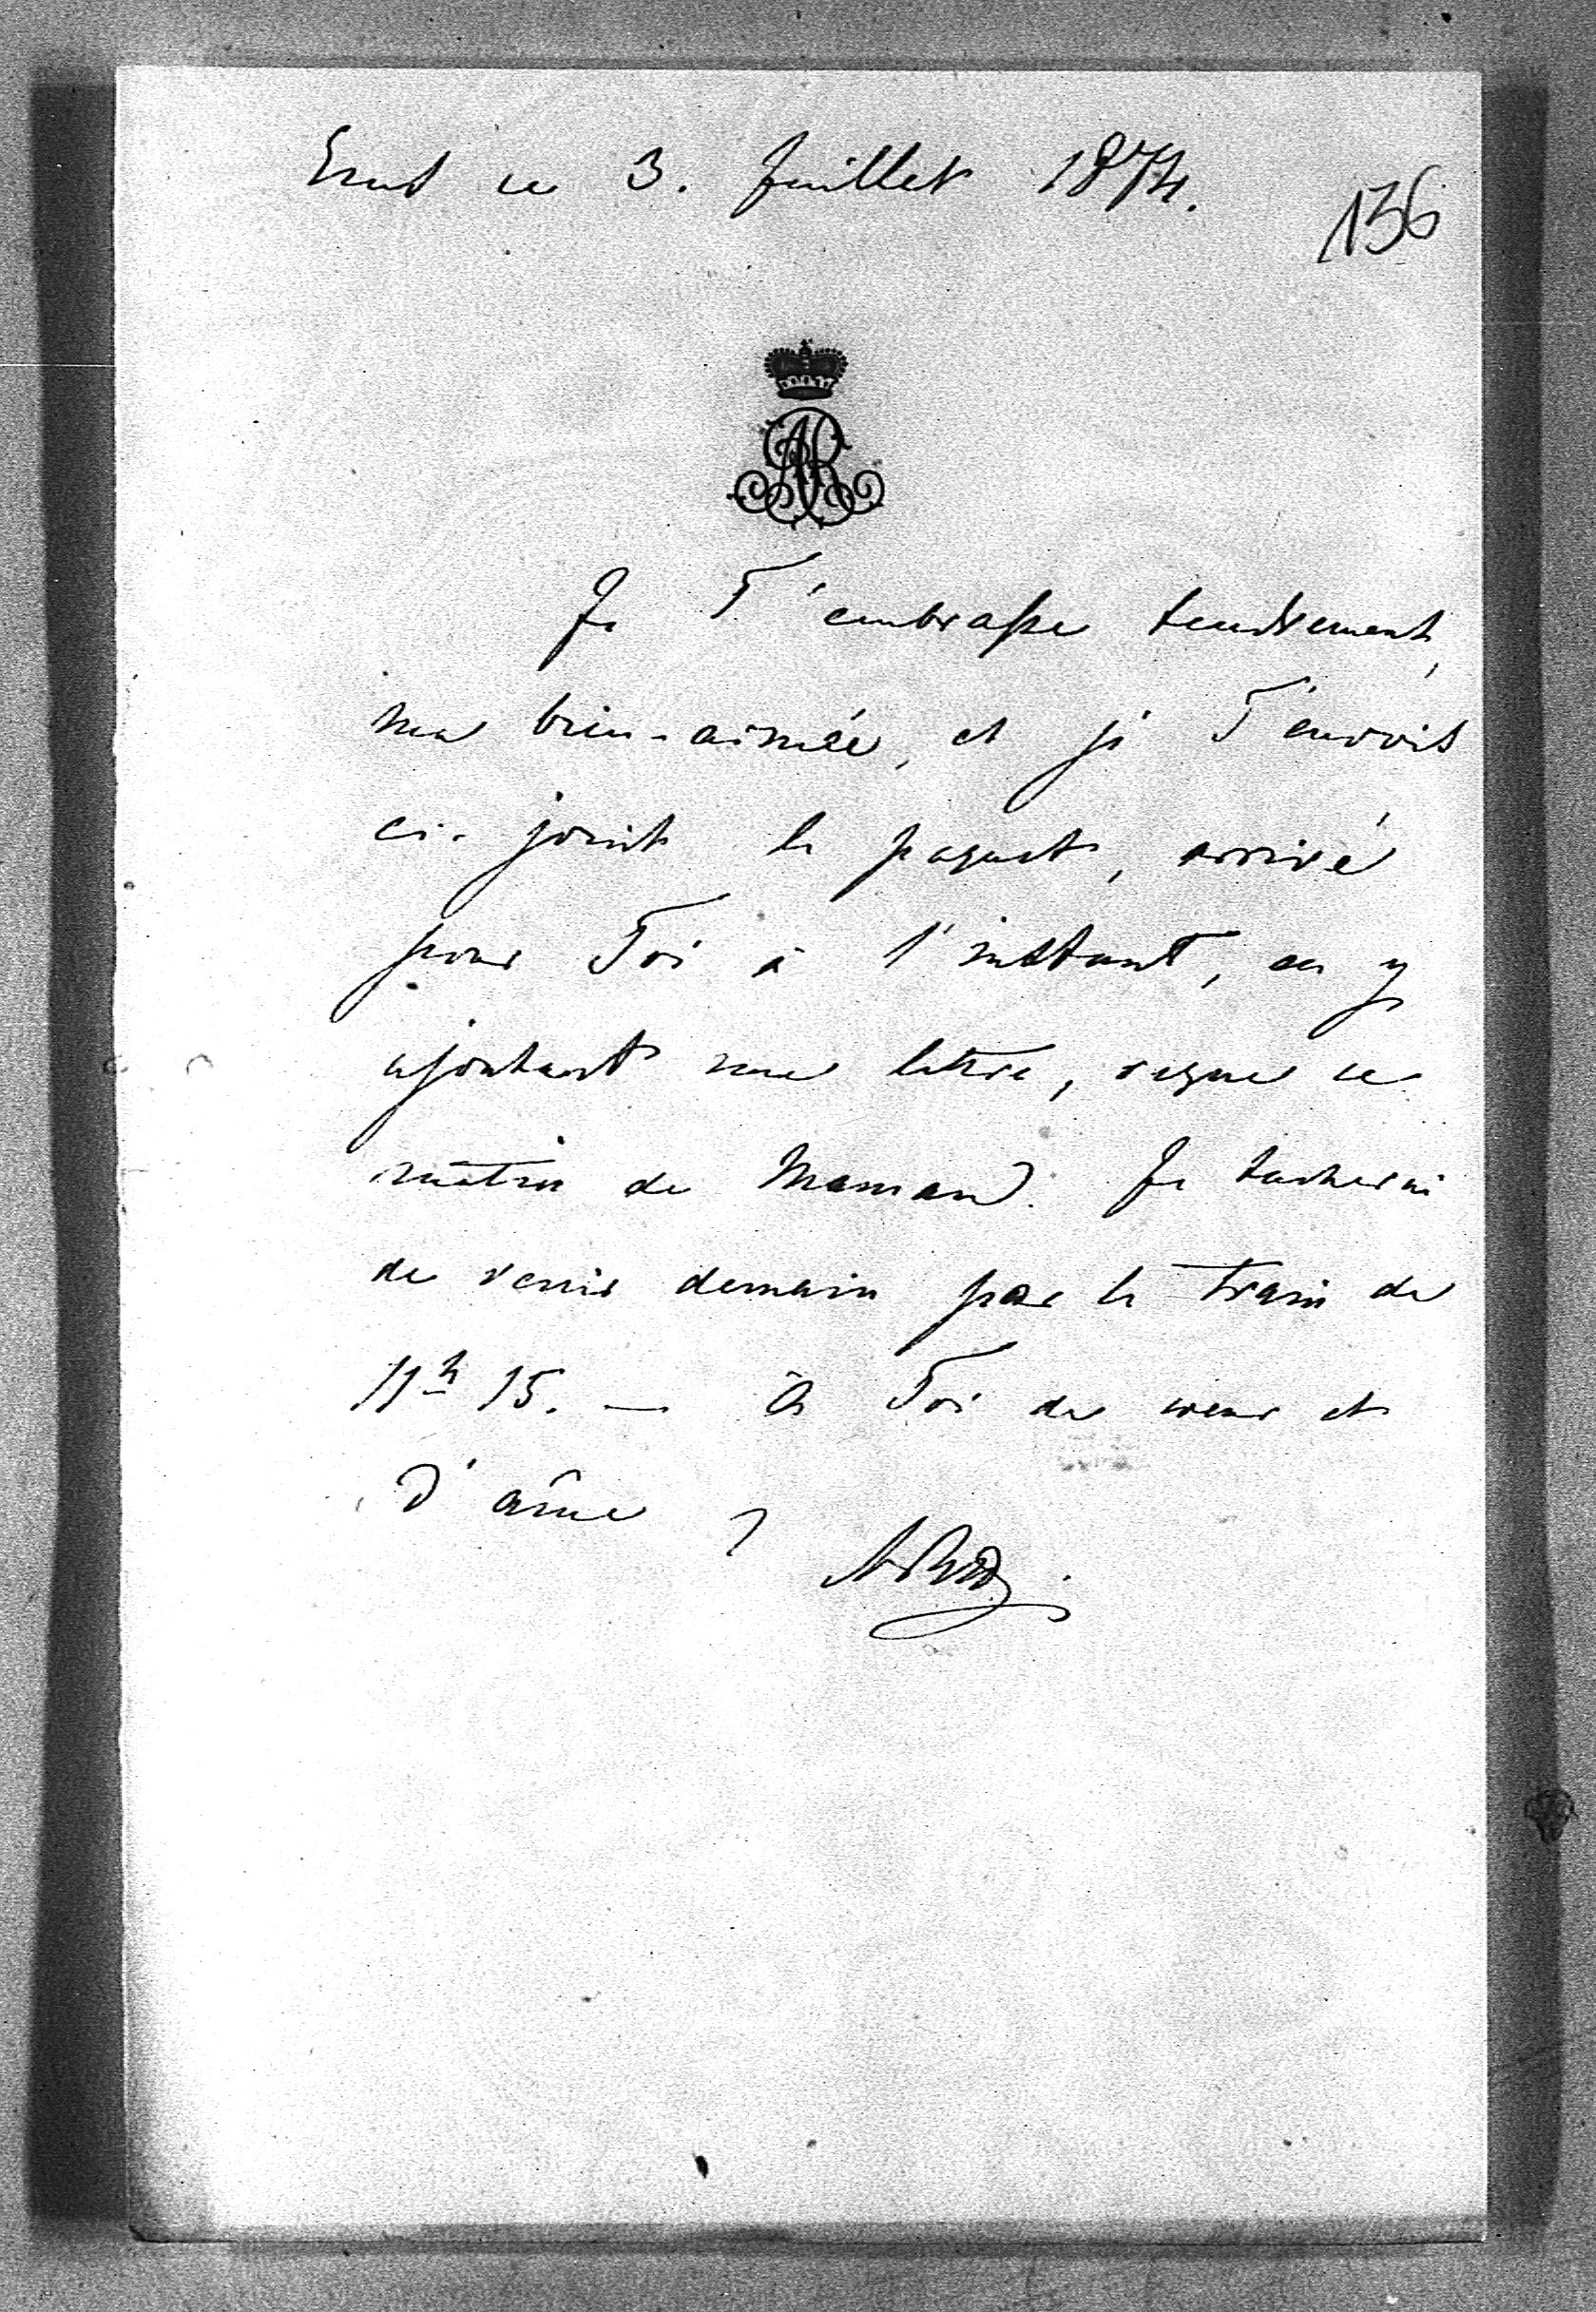 Ems ce 3. Juillet 1874.
136
AR
Je T'embrasse tendrement,
ma bien-aimée, et je T'envois
ci-joint le paquet, arrivé
pour Toi à l'instant, en y
ajoutant une lettre, reçue ce
matin de Maman. Je tacherai
de venir demain par le train de
11h 15. — à Toi de coeur et
d'âme